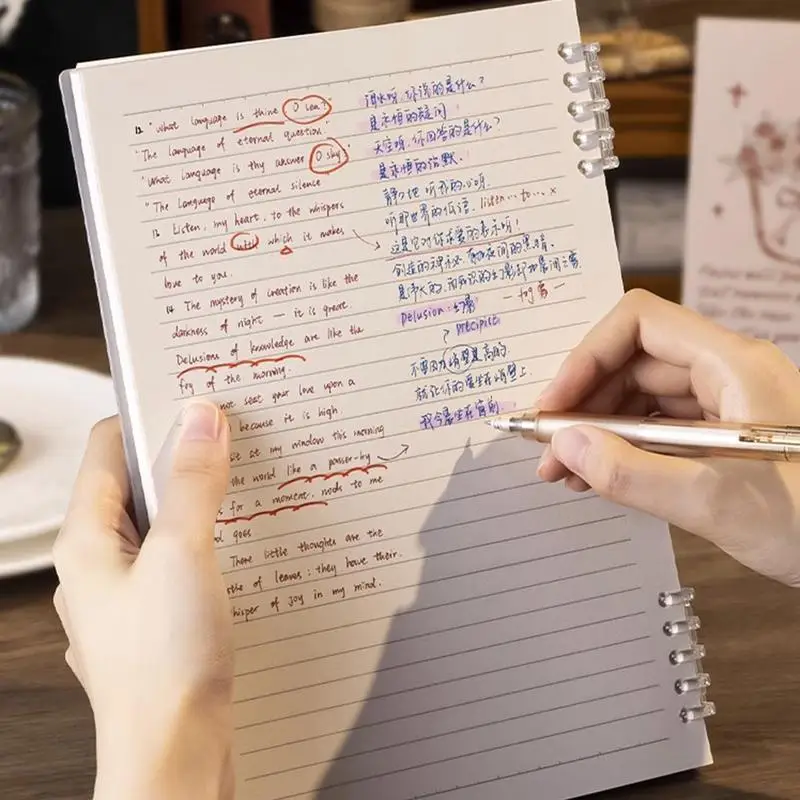 12 "What language is thine O sea?"
"The language of eternal question."
"What language is thy answer O sky?"
"The language of eternal silence
13 Listen, my heart, to the whispers
of the world with which it makes
love to you.
14 The mystery of creation is like the
darkness of night — it is great.
Delusions of knowledge are like the
fog of the morning.
not seat your love upon a
because it is high
at my window this morning
the world like a passer-by
for a moment, nods to me
goes
There little thoughts are the
of leaves; they have their
of joy in my mind.
海水呀,你说的是什么?
是永恒的疑问
天空呀,你回答的是什么?
是永恒的沉默.
静静地听,我的心呀,
听那世界的低语, listen…to…x
这是它对你求爱的表示呀!
创造的神秘,有如夜间的黑暗,
是伟大的,而知识的幻影,不过如晨间之雾.
— fog 雾 —
Delusion:幻景
precipice
不要因为峭壁是高的
就让你的爱坐在峭壁上
我今晨坐在窗前